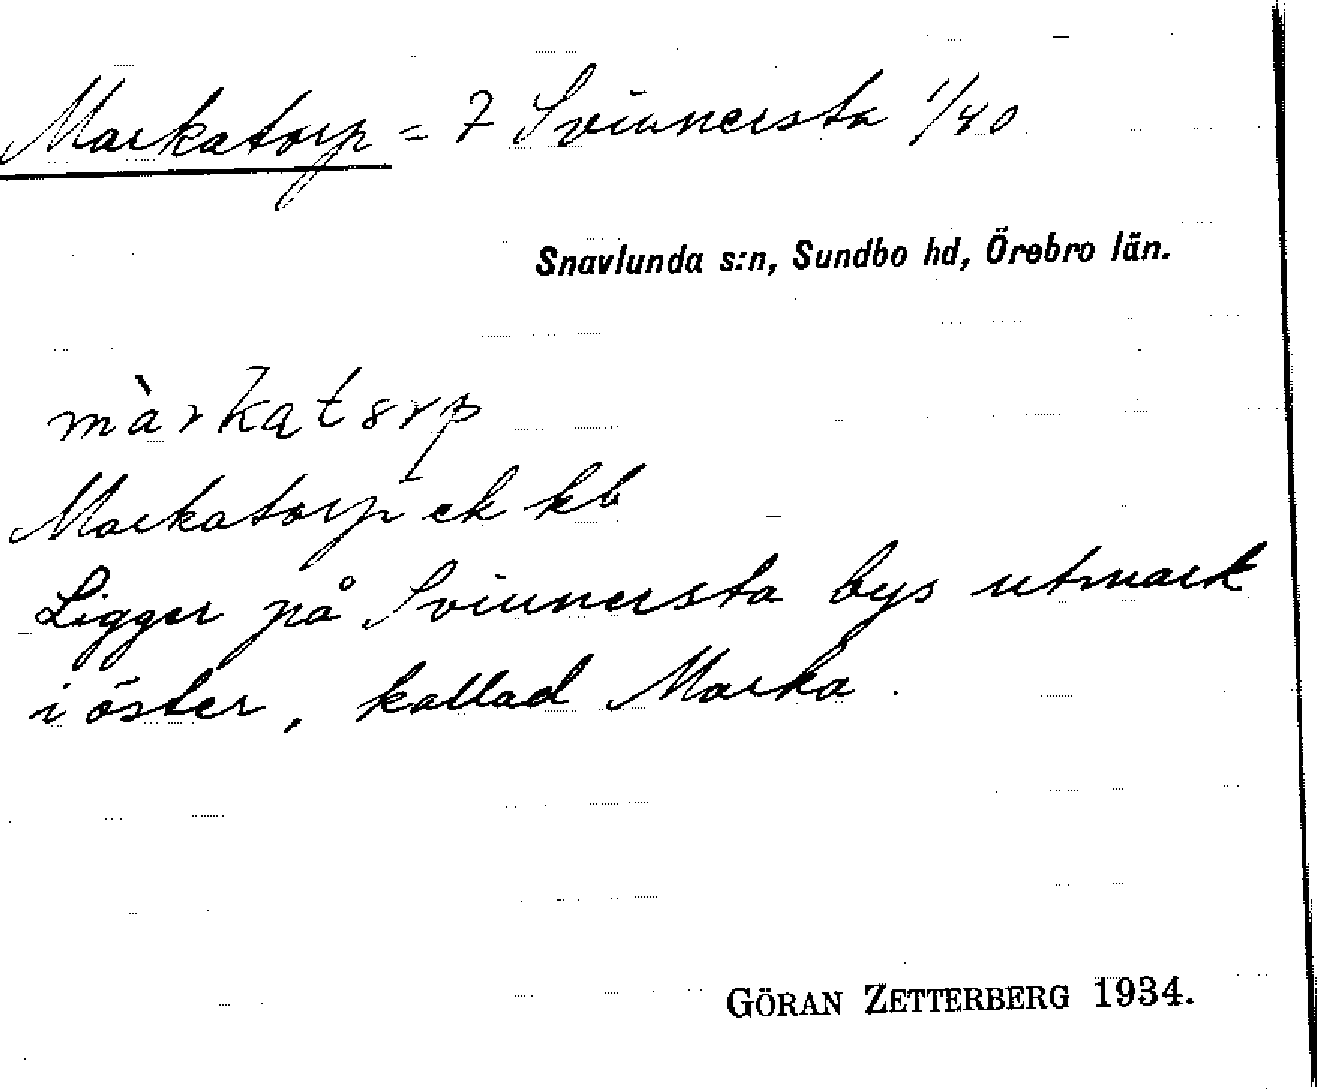 Markatorp = 7 Svinnersta 1/40
Snavlunda s:n, Sundbo hd, Örebro län.
màrkatorp
Markatorp ek kb
Ligger på Svinnersta bys utmark
i öster, kallad Marka.
GÖRAN ZETTERBERG 1934.